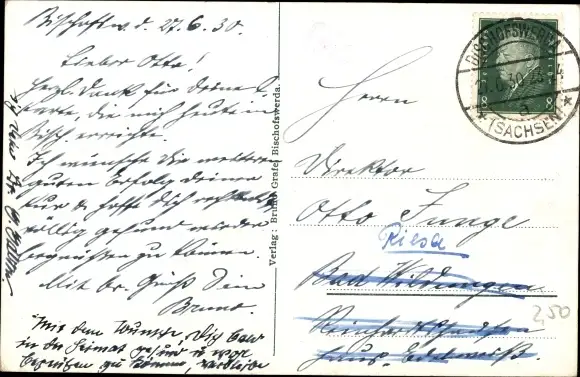 Bischofsw. d. 27.6.30.
Lieber Otto!
Herzl. Dank für deine
Karte, die mich heute in
Bisch. erreichte.
Ich wünsche dir weiteren
guten Erfolg deiner
Kur & hoffe dich
völlig gesund wieder
begrüßen zu können.
Mit br. Gruß Dein
Bruno.
Mit dem Wunsche, Dich bald
in der Heimat gesund u.
begrüßen zu können, verbleibe
Verlag: Bruno Grafe, Bischofswerda.
BISCHOFSWERDA
.6.30
a
* (SACHSEN) *
8 8
Herrn
Direktor
Otto Junge
Riesa
Bad Wildungen
Reinhardshausen
Haus Edelweiß.
2,50